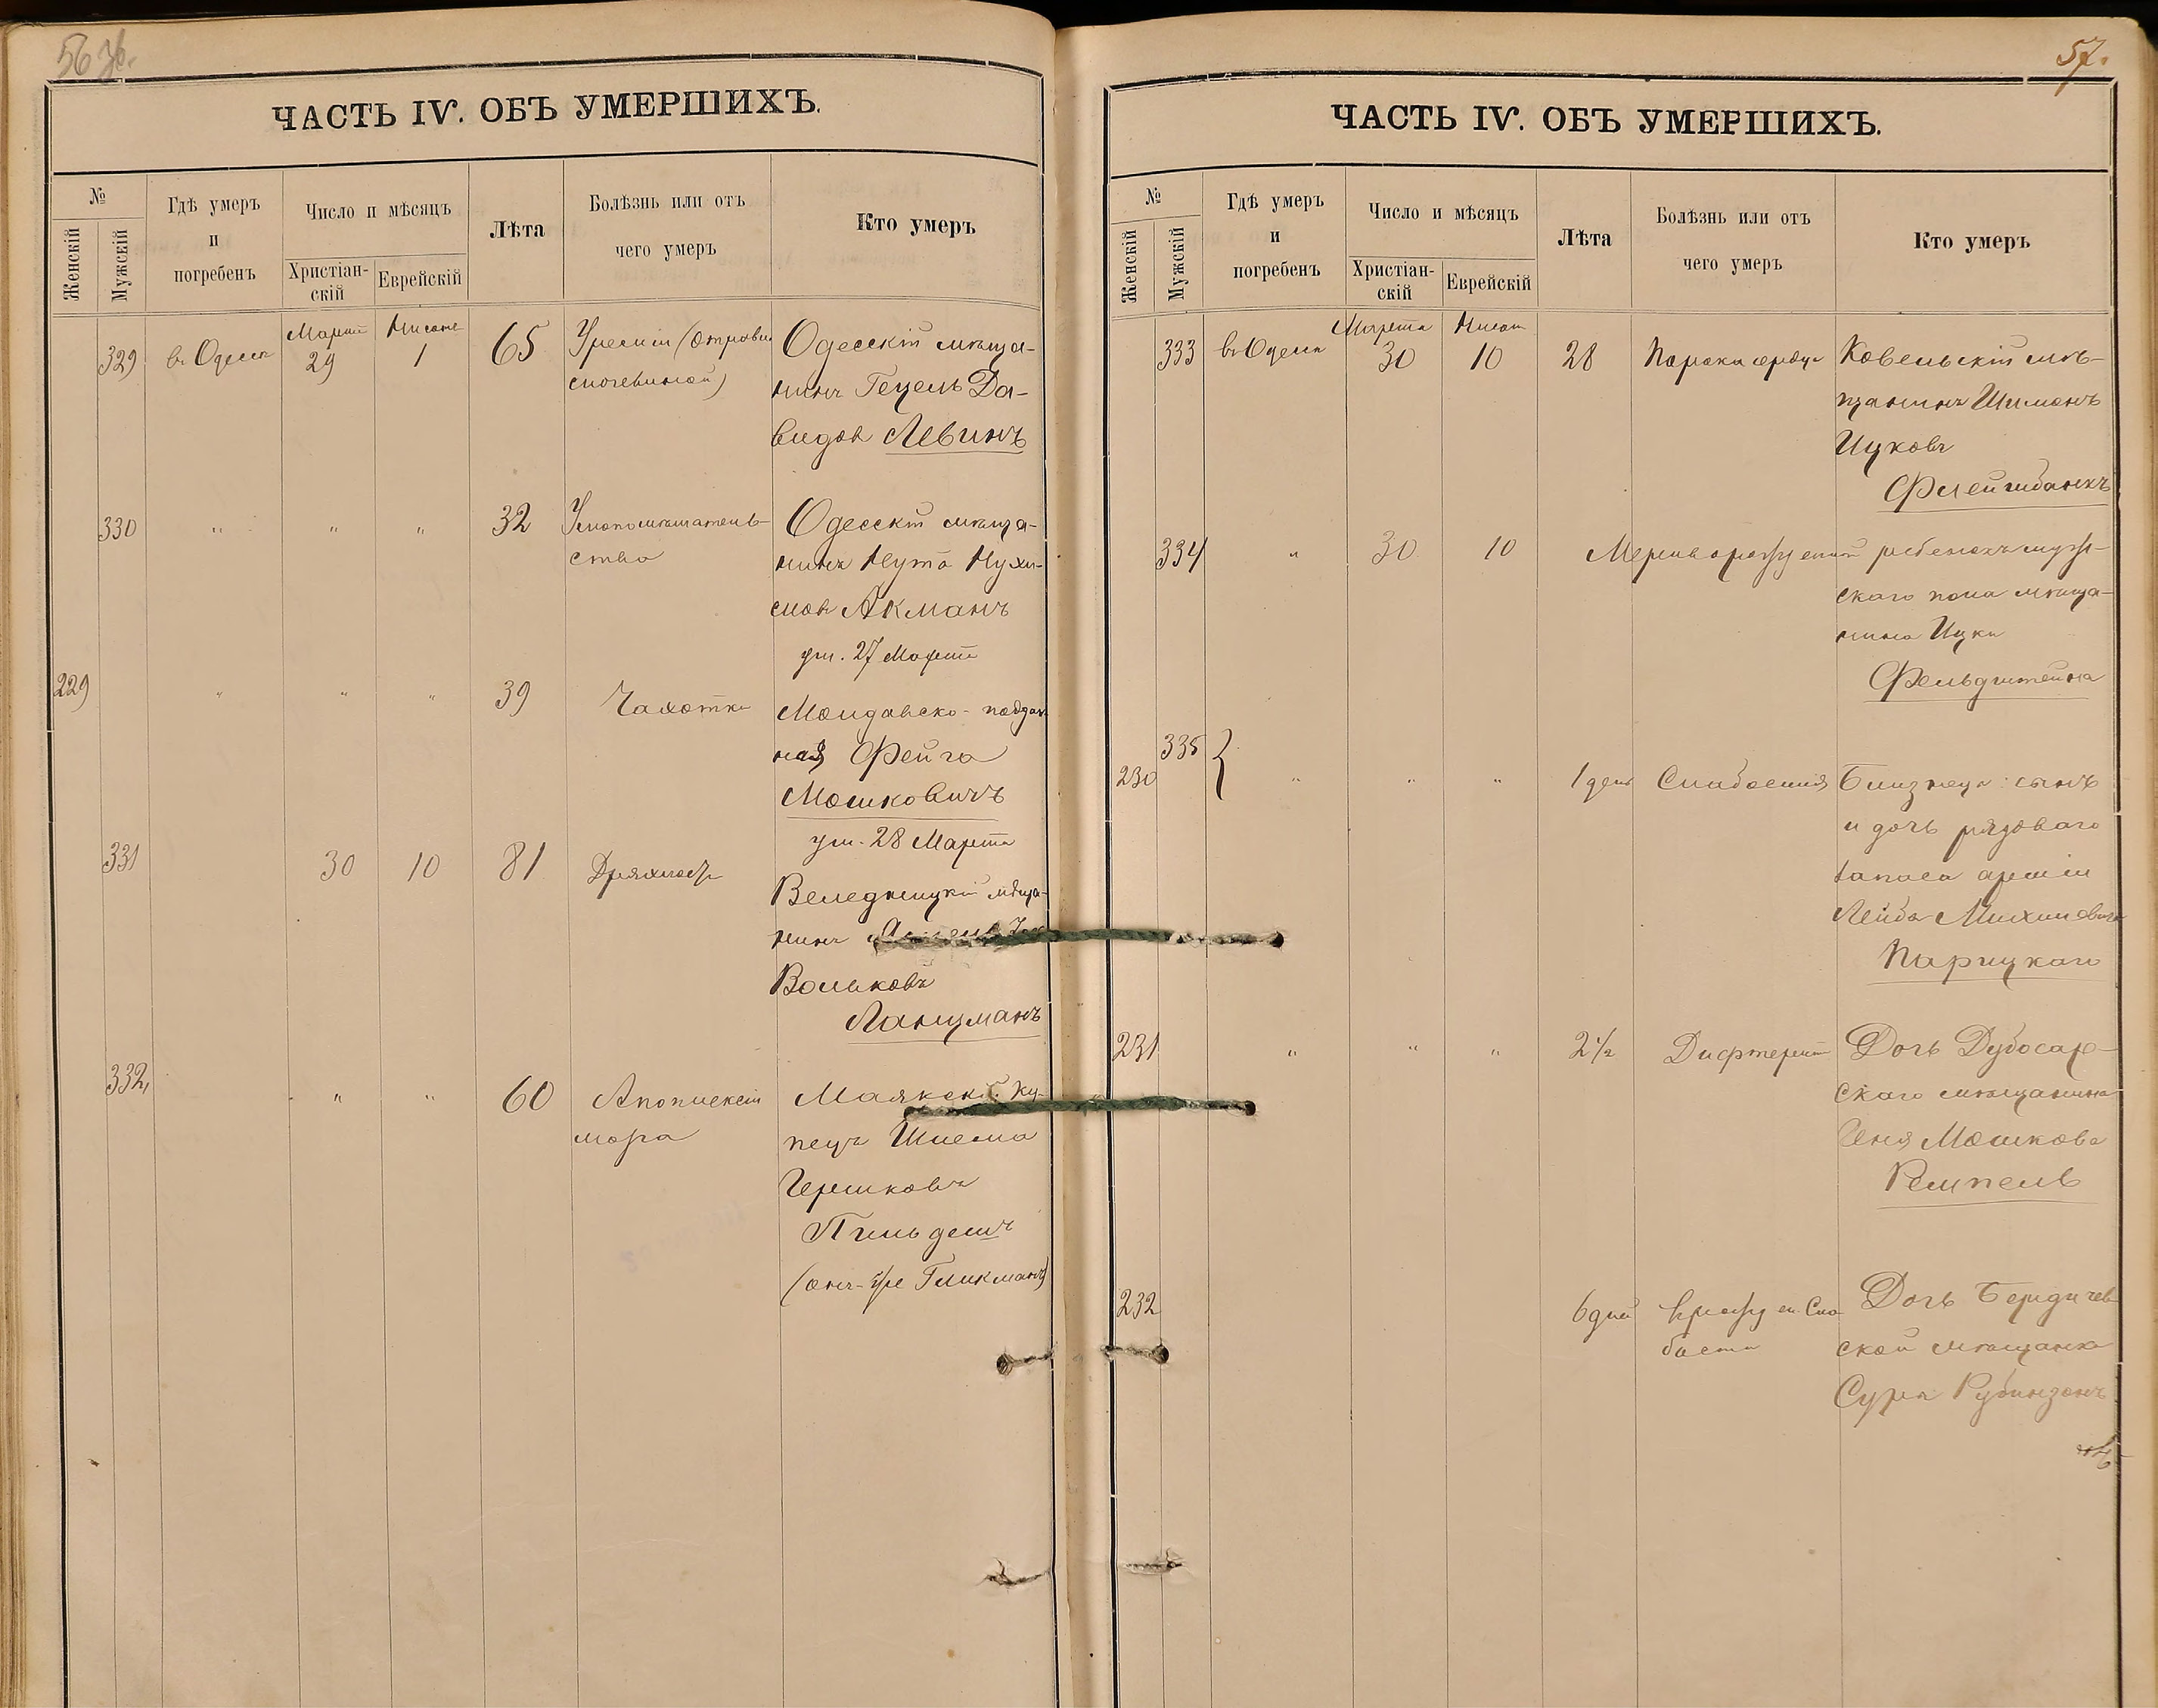 56 об.
ЧАСТЬ IV. ОБЪ УМЕРШИХЪ.
№
Женскій
Мужскій
Гдѣ умеръ
и
погребенъ
Число и мѣсяцъ
Христіан-
скій
Еврейскій
Лѣта
Болѣзнь или отъ
чего умеръ
Кто умеръ
329 въ Одессѣ Марта 29 Нисана 1 65 Уреміи (отравл.
мочевиной)
Одесскій мѣща-
нинъ Гецель Да-
видовъ Левинъ
330 " " " 32 Умопомѣшатель-
ство
Одесскій мѣща-
нинъ Нута Нухи-
мовъ Акманъ
ум. 27 Марта
229 " " " 39 Чахотка
Молдавско-поддан-
ная Фейга
Мошковичъ
ум. 28 Марта
331 30 10 81 Дряхлость
Веледницкій мѣща-
нинъ
Вольковъ
Ланцманъ
332 " " 60 Апоплексія
мозга
Маякскій ку-
пецъ Шлема
Гершковъ
(онъ-же Гликманъ)
57.
ЧАСТЬ IV. ОБЪ УМЕРШИХЪ.
№
Женскій
Мужскій
Гдѣ умеръ
и
погребенъ
Число и мѣсяцъ
Христіан-
скій
Еврейскій
Лѣта
Болѣзнь или отъ
чего умеръ
Кто умеръ
333 въ Одессѣ Марта 30 Нисан 10 28 Порока сердца
Ковельскій мѣ-
щанинъ Шимонъ
Ицковъ
Флейшбанкъ
334 " 30 10 Мертворожденный ребенокъ муж-
скаго пола мѣща-
нина Ицки
Фельдштейна
335
230 " " " 1 день Слабосилія
Близнецы: сынъ
и дочь рядоваго
запаса арміи
Лейба Михилевича
Парицкаго
231 " " " 2 1/2 Дифтерит
Дочь Дубосар-
скаго мѣщанина
Геня Мошкова
Ремпель
232 6 дней Врожден. сла-
бости
Дочь Бердичев-
ской мѣщанки
Сура Рубинзонъ